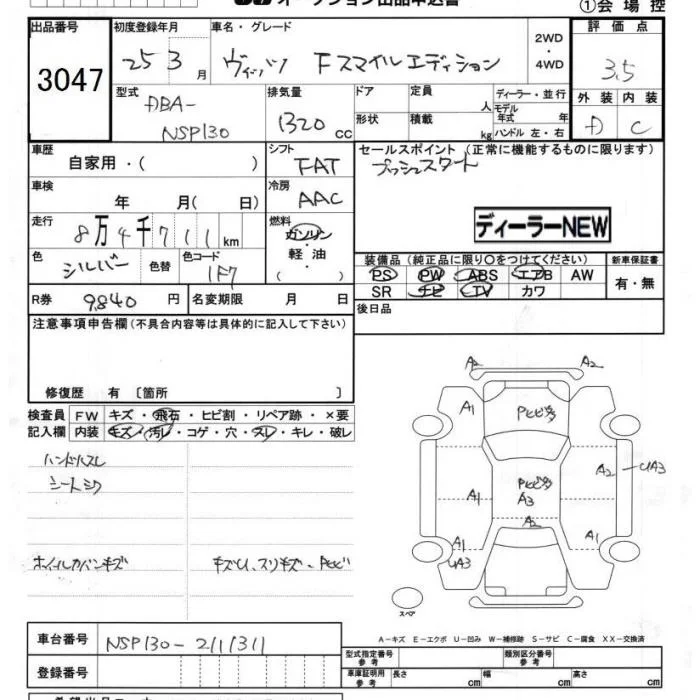 オークション出品申込書
①会場控
出品番号 初度登録年月 車名・グレード 2WD ・ 4WD 評価点
3047 25 3 月 ヴィッツ Fスマイルエディション 3.5
型式 排気量 ドア 定員 人 ディーラー・並行 外装 内装
DBA-NSP130 1320 cc 形状 積載 kg モデル年式 年 ハンドル 左・右 D C
車歴 シフト セールスポイント (正常に機能するものに限ります)
自家用・( ) FAT プッシュスタート
車検 冷房
年 月( 日) AAC
走行 燃料 ディーラーNEW
8万4千711km ガソリン
軽油
( )
色 色替 色コード 装備品(純正品に限り○をつけてください) 新車保証書
シルバー 1F7 PS PW ABS エアB AW 有・無
SR ナビ TV カワ
R券 9,840 円 名変期限 月 日 後日品
注意事項申告欄(不具合内容等は具体的に記入して下さい)
修復歴 有 〔箇所 〕
検査員 FW キズ・飛石・ヒビ割・リペア跡・×要
記入欄 内装 キズ・汚レ・コゲ・穴・スレ・キレ・破レ
ハンドルスレ
シートシワ
ホイルカバーキズ キズU、スリキズ、Pヒビ
A2 A2
A1 Pヒビ多
A2 UA3
Pヒビ多
A1 A3
A2
A1 A1
UA3
スペア
A-キズ E-エクボ U-凹み W-補修跡 S-サビ C-腐食 XX-交換済
車台番号 NSP130-2111311
型式指定番号 参考 類別区分番号 参考
登録番号 車庫証明用 参考 長さ cm 幅 cm 高さ cm